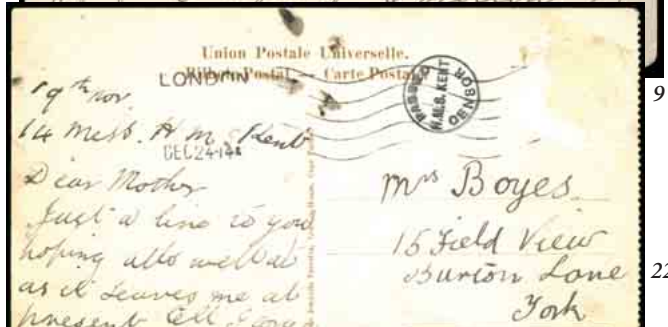 Union Postale Universelle.
Carte Postale
LONDON
DEC 24 14
PASSED
H.M.S. KENT
CENSOR
19th Nov
14 Mess. H M S Kent
Dear Mother
Just a line to you
hoping alls well at
as it leaves me at
present
Mrs Boyes
15 Field View
Burton Lane
York
9
22